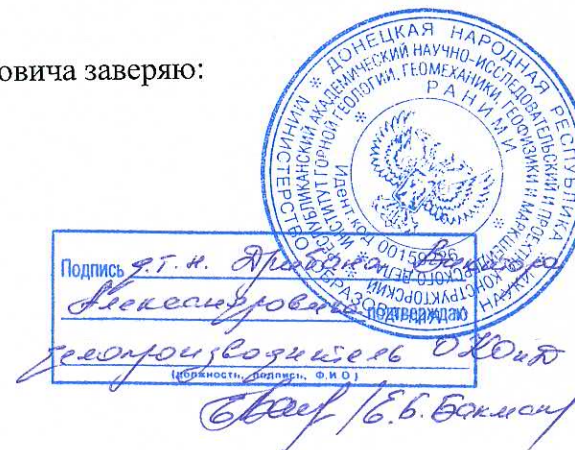 овича заверяю:
ДОНЕЦКАЯ НАРОДНАЯ РЕСПУБЛИКА
МИНИСТЕРСТВО ОБРАЗОВАНИЯ И НАУКИ
РЕСПУБЛИКАНСКИЙ АКАДЕМИЧЕСКИЙ НАУЧНО-ИССЛЕДОВАТЕЛЬСКИЙ И ПРОЕКТНО-КОНСТРУКТОРСКИЙ
ИНСТИТУТ ГОРНОЙ ГЕОЛОГИИ, ГЕОМЕХАНИКИ, ГЕОФИЗИКИ И МАРКШЕЙДЕРСКОГО ДЕЛА
РАНИМИ
Идент. код
Подпись д.т.н.
Александровича подтверждаю
делопроизводитель ОКОиД
(должность, подпись, Ф.И.О)
/Е.Б. Бакман/